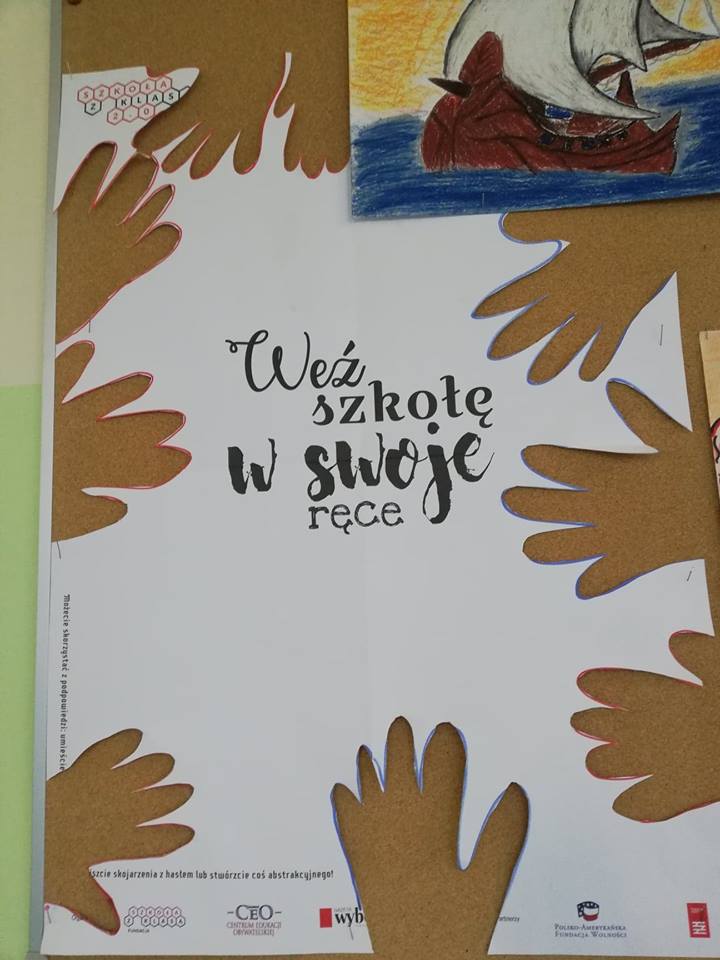 SZKOŁA
Z KLAS
2.0
Weź
szkołę
w swoje
ręce
Możecie skorzystać z podpowiedzi:
szcie skojarzenia z hasłem lub stwórzcie coś abstrakcyjnego!
SZKOŁA
Z KLASĄ
FUNDACJA
CEO
CENTRUM EDUKACJI
OBYWATELSKIEJ
wyb
POLSKO-AMERYKAŃSKA
FUNDACJA WOLNOŚCI